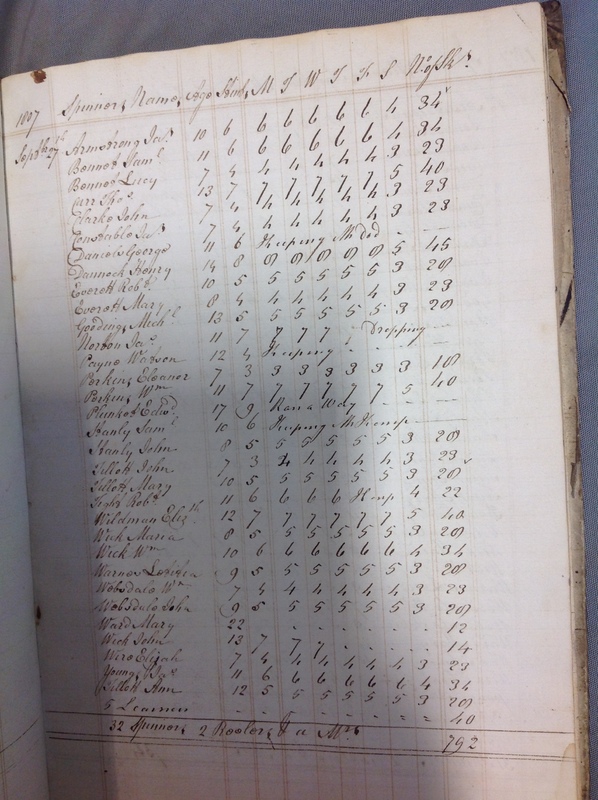 1807 Spinners Names Age Stint M T W T F S No of Sks
Septr 27th Armstrong Jas 10 6 6 6 6 6 6 4 34
Bennet Saml 11 6 6 6 6 6 6 4 34
Bennet Lucy 7 4 4 4 4 4 4 3 23
Carr Thos 13 7 7 7 7 7 7 5 40
Clarke John 7 4 4 4 4 4 4 3 23
Constable Jas 7 4 4 4 4 4 4 3 23
Daniels George 11 6 Keeping - -
Dannock Henry 14 8 8 8 8 8 8 5 45
Everett Robt 10 5 5 5 5 5 5 3 28
Everett Mary 8 4 4 4 4 4 4 3 23
Gooding Michl 13 5 5 5 5 5 5 3 28
Norton Jas 11 7 7 7 7 Dropping -
Payne Watson 12 4 Keeping - - - -
Perkins Eleanor 7 3 3 3 3 3 3 3 18
Perkins Wm 11 7 7 7 7 7 7 5 40
Plunket Edwd 17 9 Ran a Way - - -
Stanly Saml 10 6 Keeping Mr Kemp
Stanly John 8 5 5 5 5 5 5 3 28
Tillott John 7 3 4 4 4 4 4 3 23
Tillott Mary 10 5 5 5 5 5 5 3 28
Robt 11 6 6 6 6 4 22
Wildman Elizth 12 7 7 7 7 7 7 5 40
Wick Maria 8 5 5 5 5 5 5 3 28
Wick Wm 10 6 6 6 6 6 6 4 34
Warnes Letitia 9 5 5 5 5 5 5 3 28
Wobsdale Wm 7 4 4 4 4 4 4 3 23
Wobsdale John 9 5 5 5 5 5 5 3 28
Ward Mary 22 - - - - - - 12
Wick John 13 7 7 7 - - - 14
Elijah 7 4 4 4 4 4 4 3 23
Young Jas 11 6 6 6 6 6 6 4 34
Tillott Ann 12 5 5 5 5 5 5 3 28
5 Learners - - - - - - 40
32 Spinners 2 Reelers & a 792